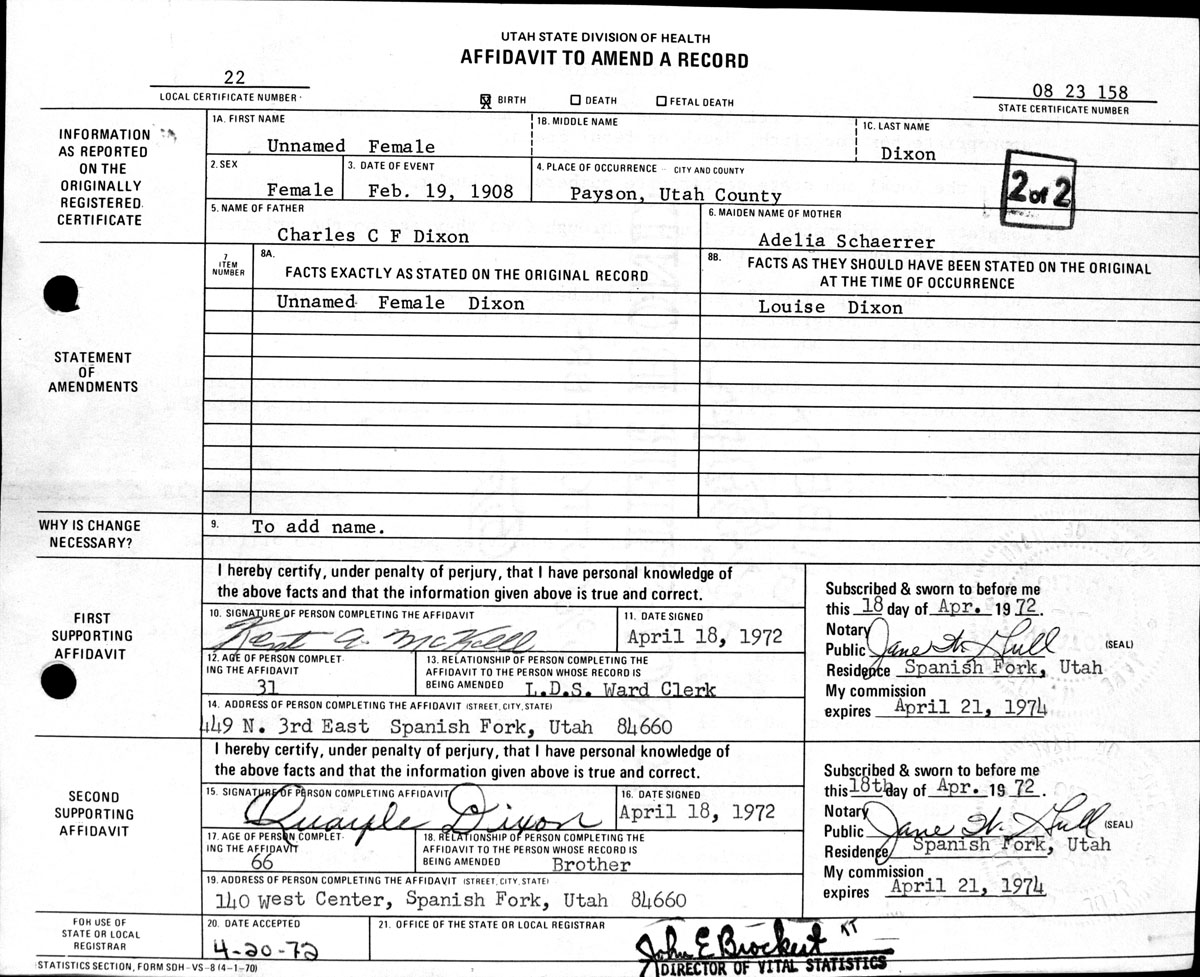 UTAH STATE DIVISION OF HEALTH
AFFIDAVIT TO AMEND A RECORD
22
LOCAL CERTIFICATE NUMBER
X BIRTH DEATH FETAL DEATH
08 23 158
STATE CERTIFICATE NUMBER
INFORMATION
AS REPORTED
ON THE
ORIGINALLY
REGISTERED
CERTIFICATE
1A. FIRST NAME
Unnamed Female
1B. MIDDLE NAME
1C. LAST NAME
Dixon
2. SEX
Female
3. DATE OF EVENT
Feb. 19, 1908
4. PLACE OF OCCURRENCE - CITY AND COUNTY
Payson, Utah County
2 of 2
5. NAME OF FATHER
Charles C F Dixon
6. MAIDEN NAME OF MOTHER
Adelia Schaerrer
STATEMENT
OF
AMENDMENTS
7
ITEM
NUMBER
8A.
FACTS EXACTLY AS STATED ON THE ORIGINAL RECORD
8B.
FACTS AS THEY SHOULD HAVE BEEN STATED ON THE ORIGINAL
AT THE TIME OF OCCURRENCE
Unnamed Female Dixon
Louise Dixon
WHY IS CHANGE
NECESSARY?
9. To add name.
FIRST
SUPPORTING
AFFIDAVIT
I hereby certify, under penalty of perjury, that I have personal knowledge of
the above facts and that the information given above is true and correct.
10. SIGNATURE OF PERSON COMPLETING THE AFFIDAVIT
Kent A. McKell
11. DATE SIGNED
April 18, 1972
12. AGE OF PERSON COMPLET-
ING THE AFFIDAVIT
31
13. RELATIONSHIP OF PERSON COMPLETING THE
AFFIDAVIT TO THE PERSON WHOSE RECORD IS
BEING AMENDED L.D.S. Ward Clerk
14. ADDRESS OF PERSON COMPLETING THE AFFIDAVIT (STREET, CITY, STATE)
449 N. 3rd East Spanish Fork, Utah 84660
Subscribed & sworn to before me
this 18 day of Apr. 1972.
Notary
Public Jane W. Hull (SEAL)
Residence Spanish Fork, Utah
My commission
expires April 21, 1974
SECOND
SUPPORTING
AFFIDAVIT
I hereby certify, under penalty of perjury, that I have personal knowledge of
the above facts and that the information given above is true and correct.
15. SIGNATURE OF PERSON COMPLETING THE AFFIDAVIT
Quayle Dixon
16. DATE SIGNED
April 18, 1972
17. AGE OF PERSON COMPLET-
ING THE AFFIDAVIT
66
18. RELATIONSHIP OF PERSON COMPLETING THE
AFFIDAVIT TO THE PERSON WHOSE RECORD IS
BEING AMENDED Brother
19. ADDRESS OF PERSON COMPLETING THE AFFIDAVIT (STREET, CITY, STATE)
140 West Center, Spanish Fork, Utah 84660
Subscribed & sworn to before me
this 18th day of Apr. 1972.
Notary
Public Jane W. Hull (SEAL)
Residence Spanish Fork, Utah
My commission
expires April 21, 1974
FOR USE OF
STATE OR LOCAL
REGISTRAR
20. DATE ACCEPTED
4-20-72
21. OFFICE OF THE STATE OR LOCAL REGISTRAR
John E Brockert KT
DIRECTOR OF VITAL STATISTICS
STATISTICS SECTION, FORM SDH-VS-8 (4-1-70)